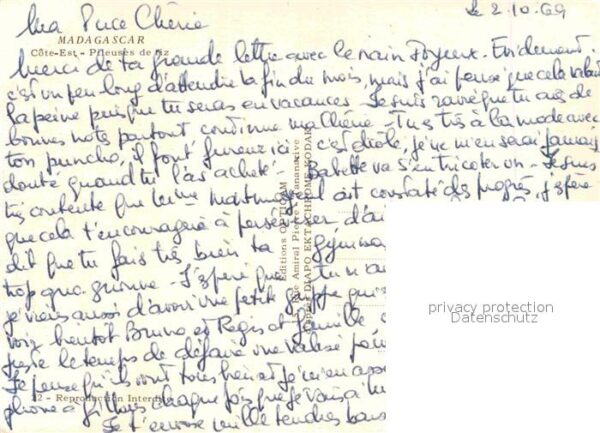 Ma Puce Chérie
le 2.10.69
MADAGASCAR
Côte-Est - Pileuses de riz
Merci de ta grande lettre avec le nain Joyeux. Evidemment.
c'est un peu long d'attendre la fin du mois, mais j'ai pensé que cela valait
la peine puisque tu seras en vacances. Je suis ravie que tu aies de
bonnes notes partout continue ma Chérie - Tu es très à la mode avec
ton puncho, il font fureur ici c'est drôle, je ne m'en serai jamais
douté quand tu l'as acheté - Babette va s'en tricoter un - Je suis
très contente que ait constaté des progrès, j'espère
que cela t'encouragera à persévérer, d'ai
dit que tu fais très bien ta gymna
trop qua - J'espère que tu n'a
je viens aussi d'avoir une petite grippe qui
voir bientôt Bruno et Regis et famille
juste le temps de défaire une valise
Je pense qu'ils vont tous bien et je m'en
phone à Gilbous chaque fois que je vais à
Je t'envoie mille tendres bais
Editions OPTICAM
Rue Amiral Pierre Tananarive
DIAPO EKTACHROME KODAK
22 - Reproduction Interdite
privacy protection
Datenschutz